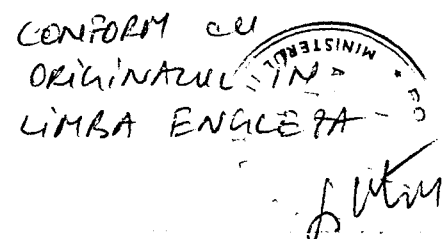 CONFORM CU
ORIGINALUL IN
LIMBA ENGLEZA
MINISTERUL